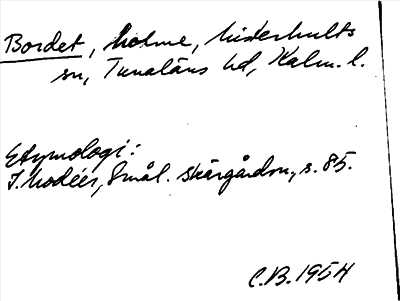 Bordet, holme, Misterhults
sn, Tunaläns hd, Kalm. l.
Etymologi:
I. Modéer, Smål. skärgårdsn., s. 85.
C.B. 1954